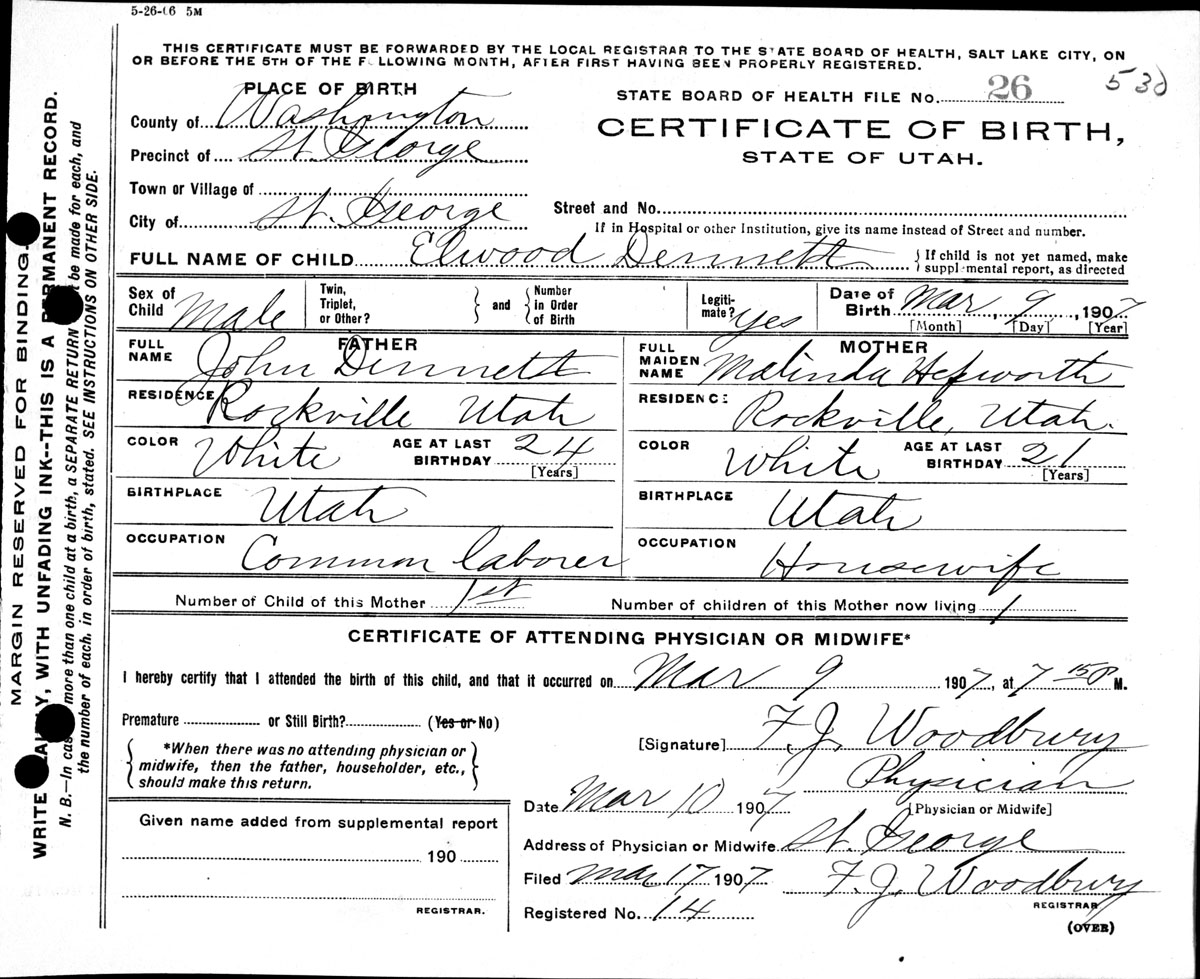 5-26-06 5M
THIS CERTIFICATE MUST BE FORWARDED BY THE LOCAL REGISTRAR TO THE STATE BOARD OF HEALTH, SALT LAKE CITY, ON
OR BEFORE THE 5TH OF THE FOLLOWING MONTH, AFTER FIRST HAVING BEEN PROPERLY REGISTERED.
PLACE OF BIRTH
STATE BOARD OF HEALTH FILE No. 26
530
County of Washington
CERTIFICATE OF BIRTH,
Precinct of St. George
STATE OF UTAH.
Town or Village of
City of St. George
Street and No.
If in Hospital or other Institution, give its name instead of Street and number.
FULL NAME OF CHILD Elwood Dennett
{ If child is not yet named, make
supplemental report, as directed
Sex of Child Male
Twin, Triplet, or Other?
and
Number in Order of Birth
Legiti-mate? yes
Date of Birth Mar, 9, 1907
[Month] [Day] [Year]
FATHER
FULL NAME John Dennett
RESIDENCE Rockville Utah
COLOR White AGE AT LAST BIRTHDAY 24
[Years]
BIRTHPLACE Utah
OCCUPATION Common laborer
MOTHER
FULL MAIDEN NAME Malinda Hepworth
RESIDENCE Rockville, Utah.
COLOR White AGE AT LAST BIRTHDAY 21
[Years]
BIRTHPLACE Utah
OCCUPATION Housewife
Number of Child of this Mother 1st
Number of children of this Mother now living 1
CERTIFICATE OF ATTENDING PHYSICIAN OR MIDWIFE*
I hereby certify that I attended the birth of this child, and that it occurred on Mar 9 1907, at 7 15 P M.
Premature or Still Birth? (Yes or No)
*When there was no attending physician or
midwife, then the father, householder, etc.,
should make this return.
[Signature] F. J. Woodbury
Physician
[Physician or Midwife]
Date Mar 10 1907
Address of Physician or Midwife St. George
Filed Mar 17 1907 F. J. Woodbury
REGISTRAR
Registered No. 14
(OVER)
Given name added from supplemental report
190
REGISTRAR.
MARGIN RESERVED FOR BINDING.
WRITE PLAINLY, WITH UNFADING INK--THIS IS A PERMANENT RECORD.
N. B.—In case more than one child at a birth, a SEPARATE RETURN must be made for each, and
the number of each, in order of birth, stated. SEE INSTRUCTIONS ON OTHER SIDE.